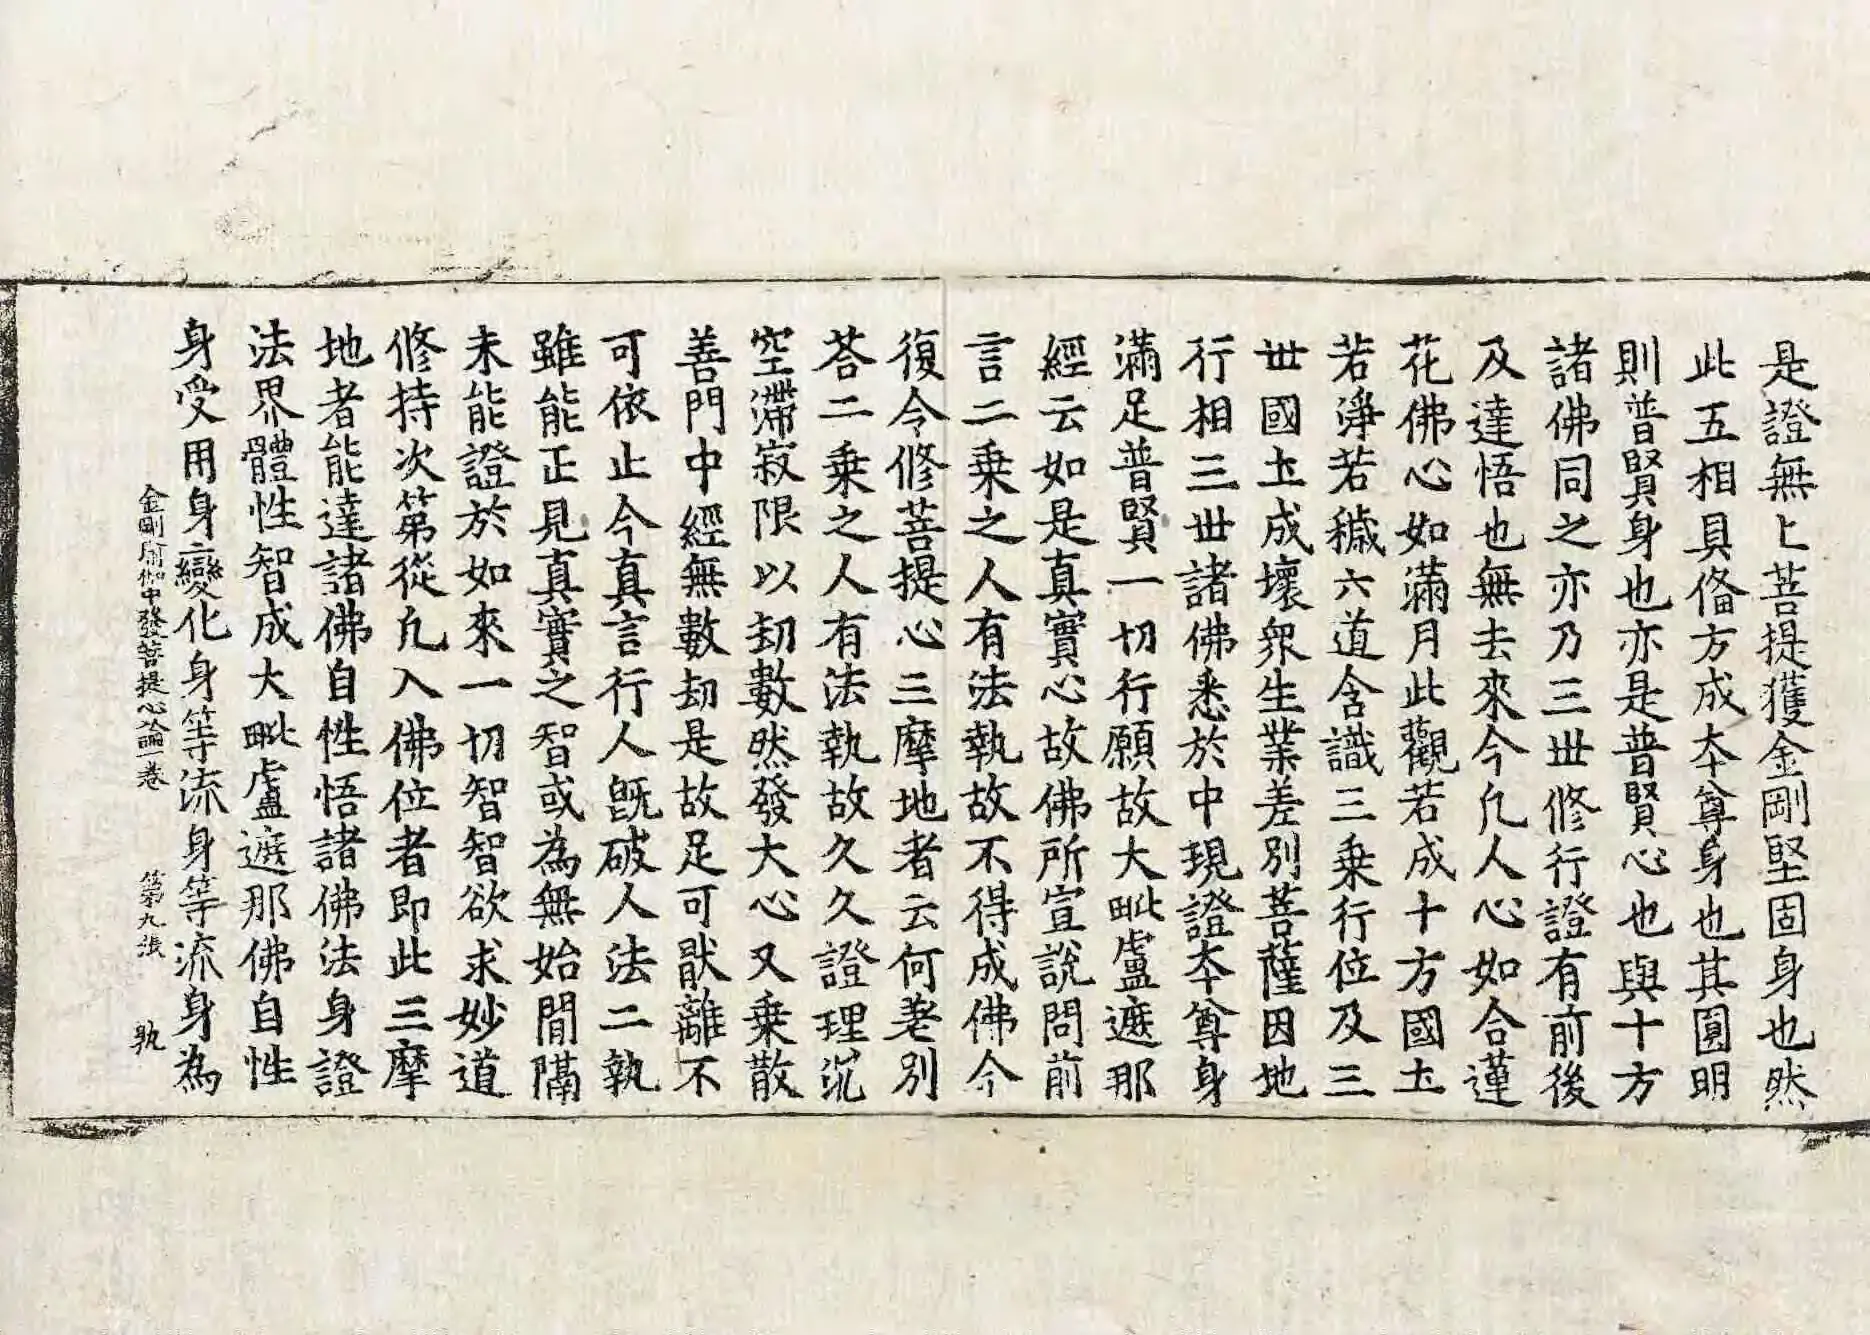 是證無上菩提獲金剛堅固身也然
此五相具俻方成夲尊身也其圓明
則普賢身也亦是普賢心也與十方
諸佛同之亦乃三丗修行證有前後
及達悟也無去來今凢人心如合蓮
花佛心如滿月此觀若成十方國土
若淨若穢六道含識三乗行位及三
丗國土成壞衆生業差別菩薩因地
行相三丗諸佛悉於中現證夲尊身
滿足普賢一切行願故大毗盧遮那
經云如是真實心故佛所宣說問前
言二乗之人有法執故不得成佛今
復令修菩提心三摩地者云何差別
荅二乗之人有法執故久久證理沉
空滯寂限以刧數然發大心又乗散
善門中經無數刧是故足可猒離不
可依止今真言行人旣破人法二執
雖能正見真實之智或為無始閒隔
未能證於如來一切智智欲求妙道
修持次第從凢入佛位者即此三摩
地者能達諸佛自性悟諸佛法身證
法界體性智成大毗盧遮那佛自性
身受用身變化身等流身等流身為
金剛瑜伽中發菩提心論一卷 第九張 執